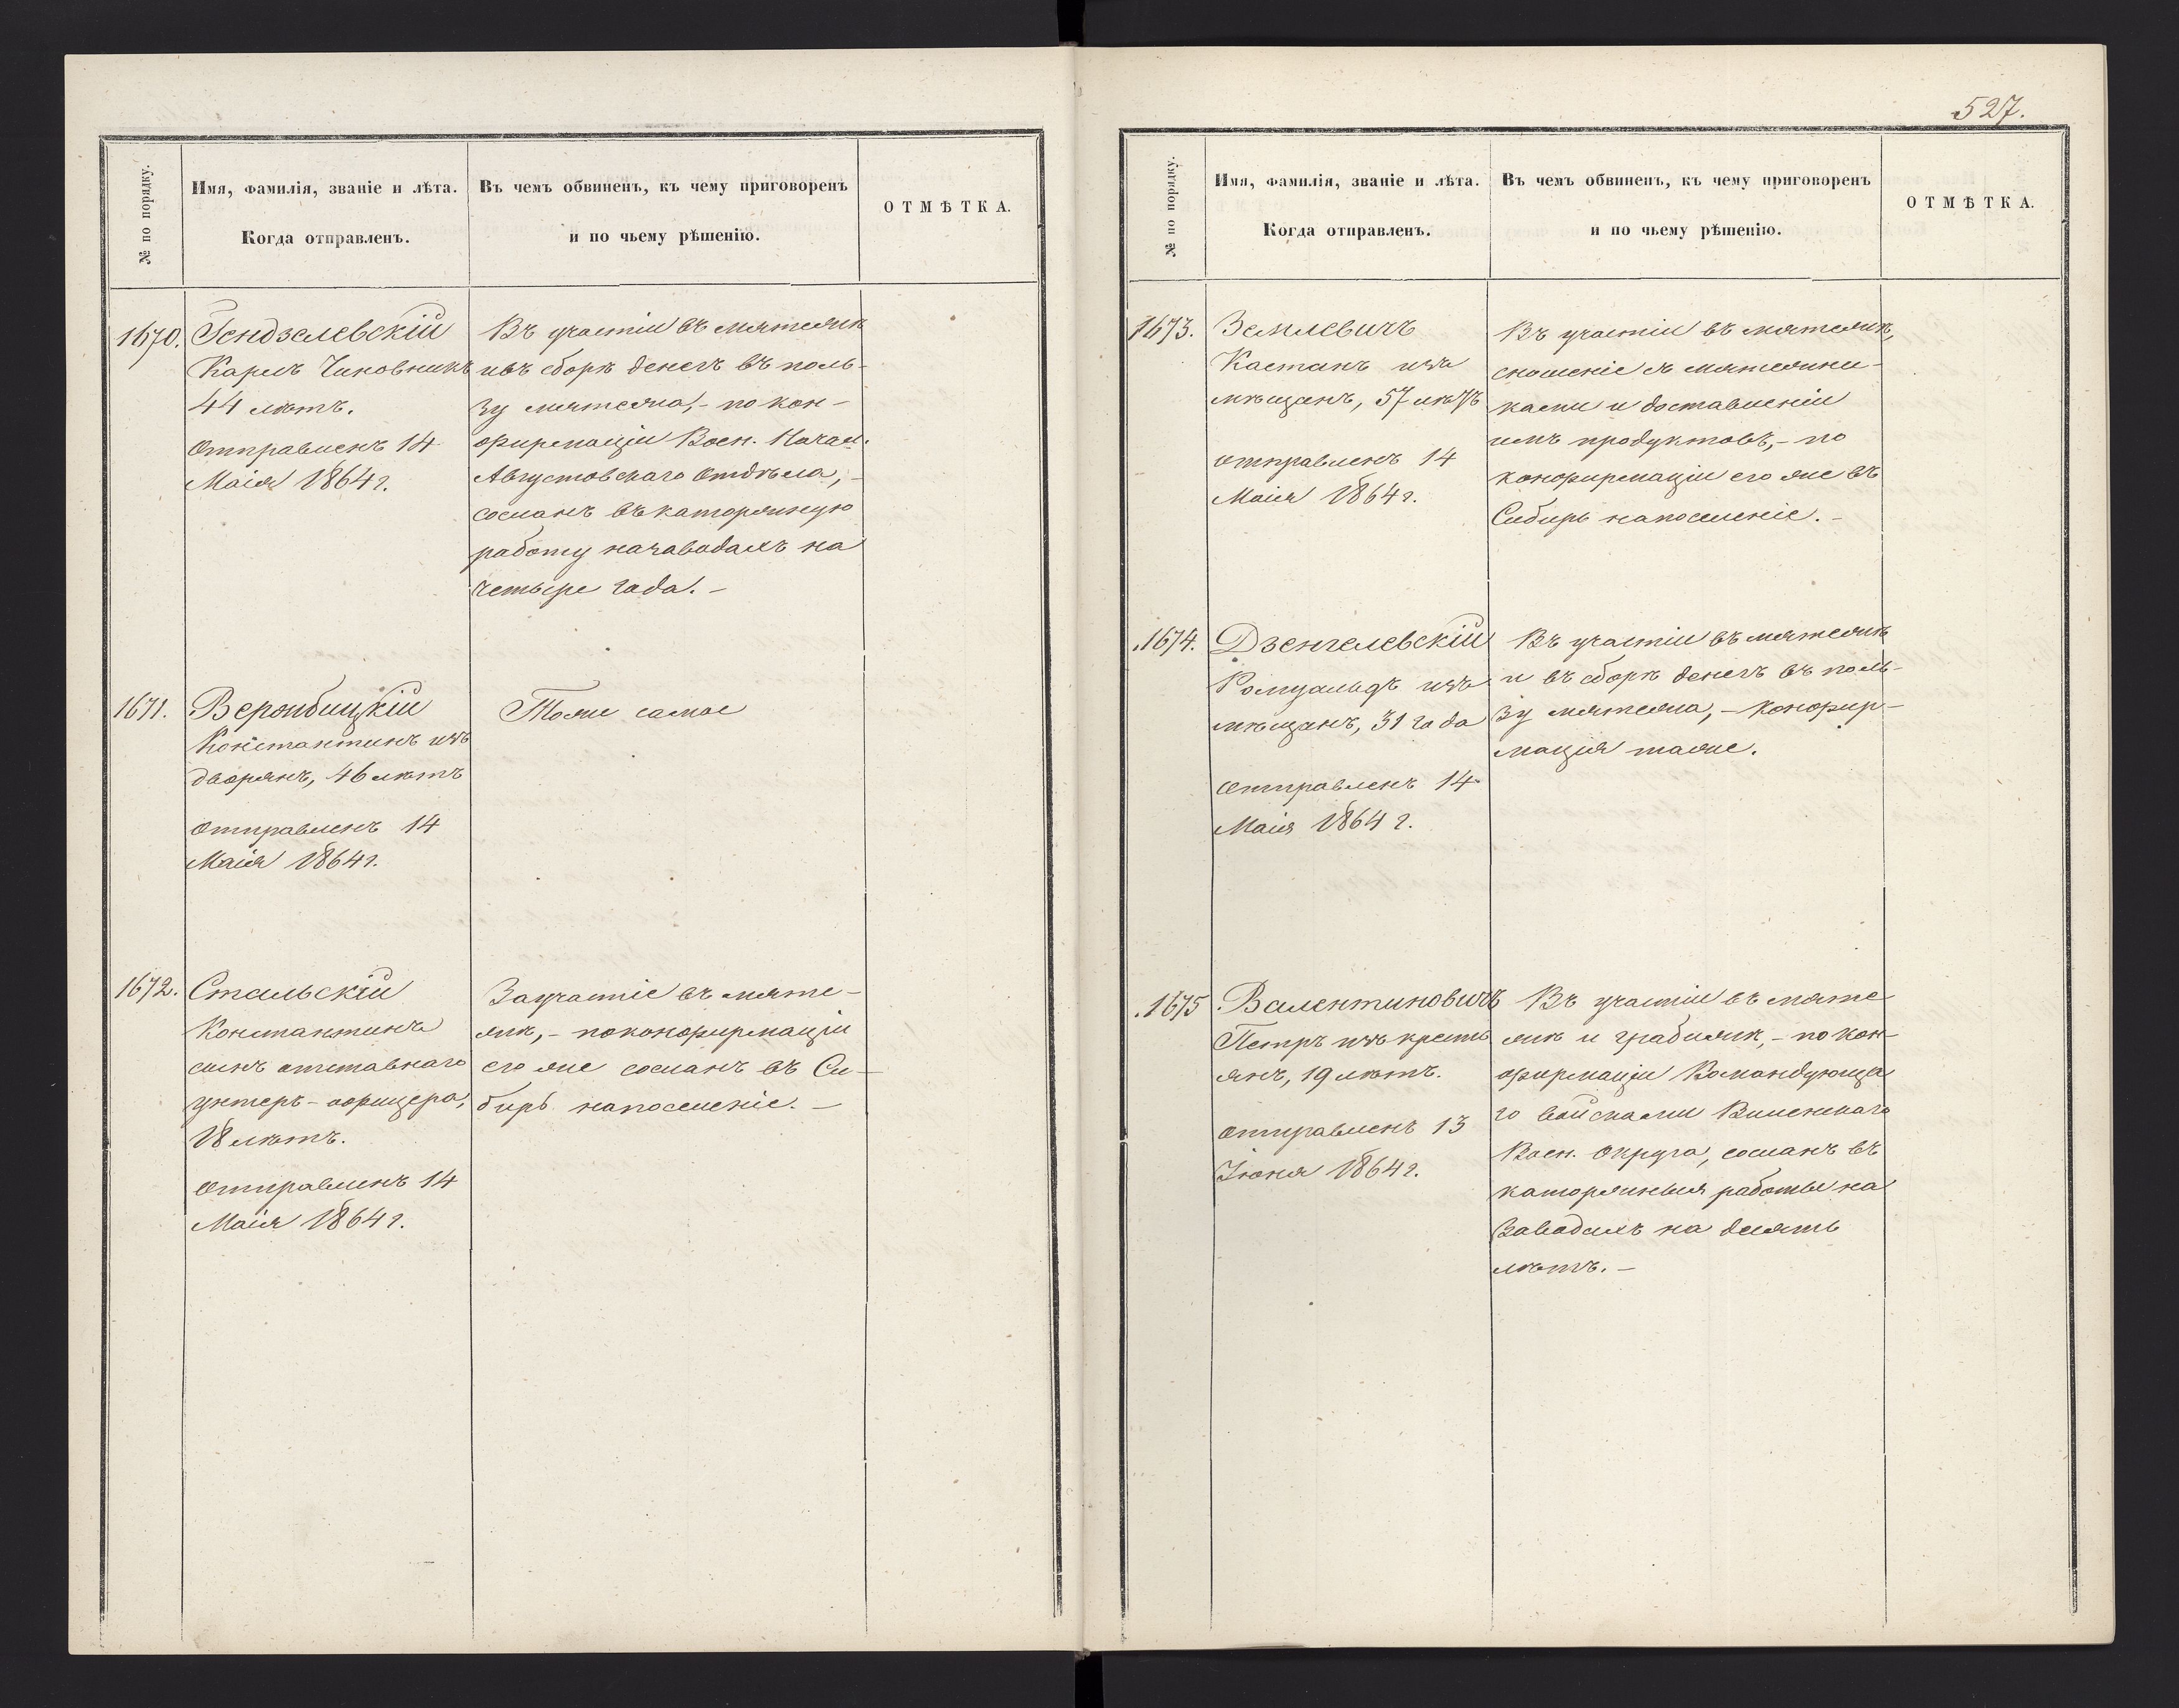 № по порядку.
Имя, фамилія, званіе и лѣта.
Когда отправленъ.
Въ чемъ обвиненъ, къ чему приговоренъ
и по чьему рѣшенію.
ОТМѢТКА.
1670.
Гендзелевскій
Карлъ Чиновникъ
44 лѣтъ.
Отправленъ 14
Маія 1864 г.
Въ участіи въ мятежѣ
и въ сборѣ денегъ въ поль-
зу мятежа, - по кон-
фирмаціи Воен. Начал.
Августовскаго Отдѣла, -
сосланъ въ каторжную
работу на заводахъ на
четыре года. -
1671.
Веромбицкій
Константинъ изъ
дворянъ, 46 лѣтъ
Отправленъ 14
Маія 1864 г.
Тоже самое
1672.
Стальскій
Константинъ
сынъ отставнаго
унтеръ-офицера,
18 лѣтъ.
Отправленъ 14
Маія 1864 г.
За участіе въ мяте-
жѣ, - по конфирмаціи
его же сосланъ въ Си-
бирь на поселеніе. -
527.
№ по порядку.
Имя, фамилія, званіе и лѣта.
Когда отправленъ.
Въ чемъ обвиненъ, къ чему приговоренъ
и по чьему рѣшенію.
ОТМѢТКА.
1673.
Землевичъ
Каетанъ изъ
мѣщанъ, 57 лѣтъ
отправленъ 14
Маія 1864 г.
Въ участіи въ мятежѣ,
сношеніе съ мятежни-
ками и доставленіи
имъ продуктовъ, - по
конфирмаціи его же въ
Сибирь на поселеніе. -
1674.
Дзенгелевскій
Ромуальдъ изъ
мѣщанъ, 31 года
Отправленъ 14
Маія 1864 г.
Въ участіи въ мятежѣ
и въ сборѣ денегъ въ поль-
зу мятежа, - Конфир-
мація таже.
1675
Валентиновичъ
Петръ изъ кресть
янъ, 19 лѣтъ.
Отправленъ 13
Іюня 1864 г.
Въ участіи въ мяте
жѣ и грабежѣ, - по кон-
фирмаціи Командующа
го войсками Виленскаго
Воен. Округа, сосланъ въ
каторжныя работы на
заводахъ на десять
лѣтъ. -